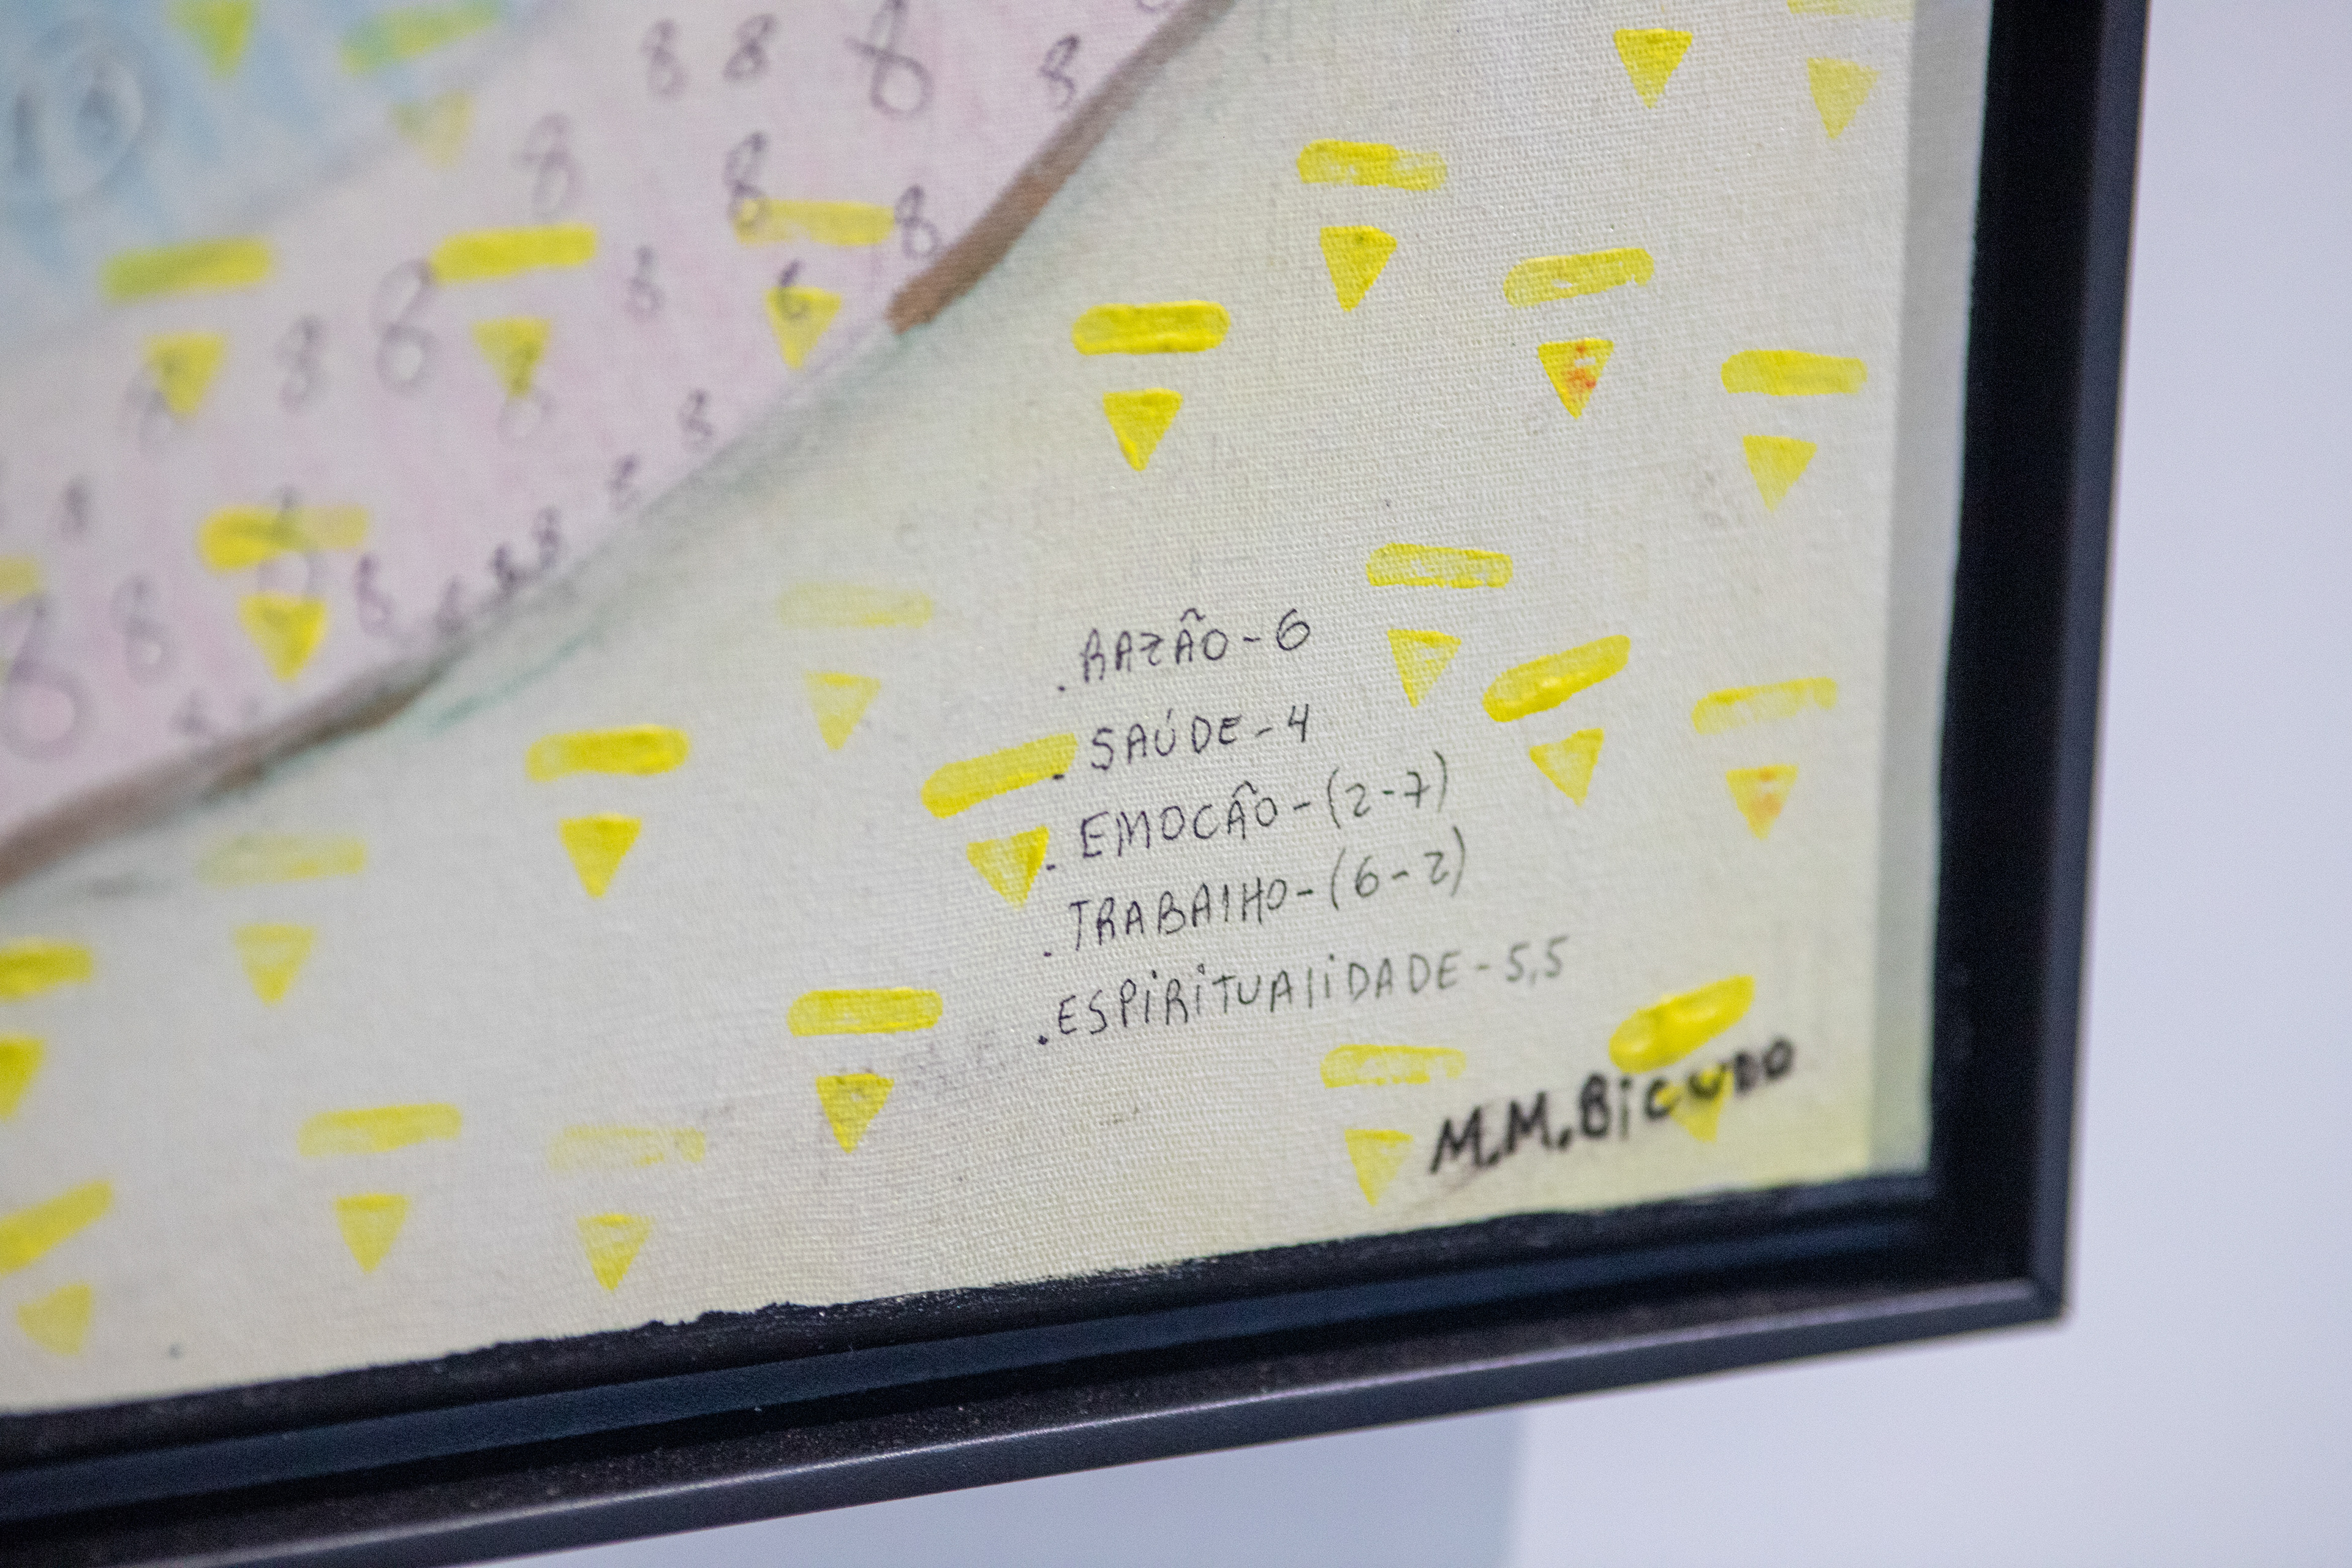 8 8 8 8
8 8 8
8 8 8
8
. RAZÃO - 6
. SAÚDE - 4
. EMOCÃO - (2-7)
. TRABAlHO - (6-2)
. ESPiRiTUAliDADE - 5,5
M.M.BiCUDO